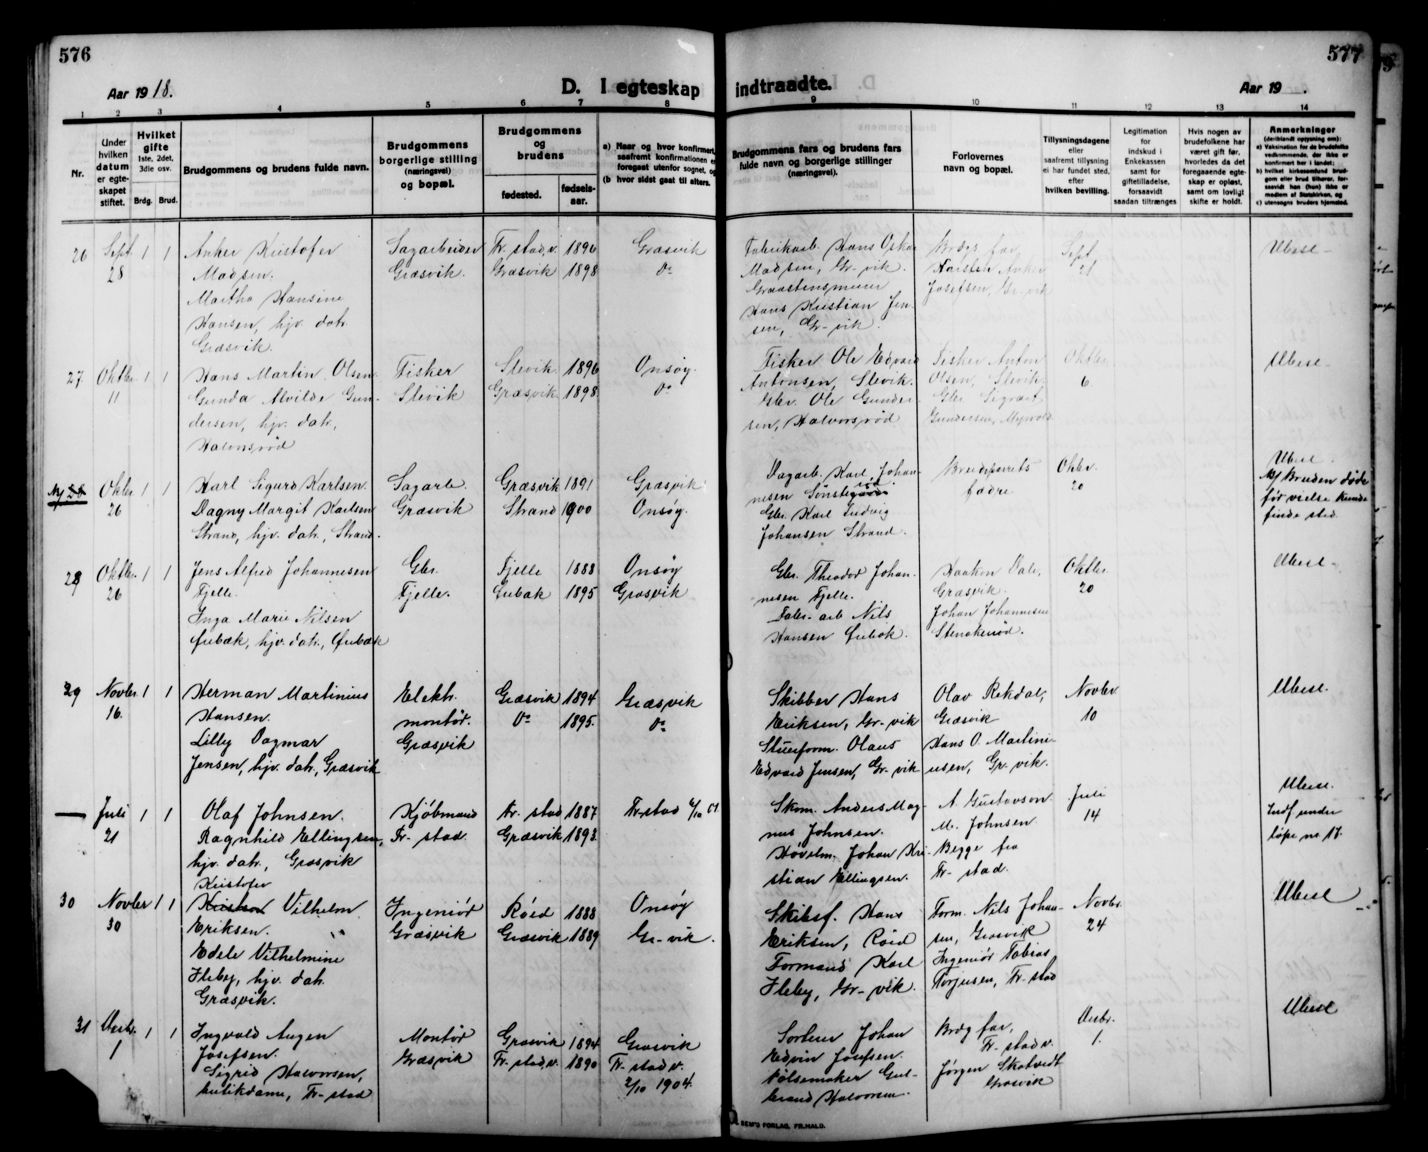 576
577
Aar 1918.
D. Iegteskap
indtraadte.
Aar 19 .
1 2 3 4 5 6 7 8 9 10 11 12 13 14
Nr.
Under
hvilken
datum
er egte-
skapet
stiftet.
Hvilket
gifte
1ste, 2det,
3die osv.
Brdg. Brud.
Brudgommens og brudens fulde navn.
Brudgommens
borgerlige stilling
(næringsvei)
og bopæl.
Brudgommens
og
brudens
fødested.
fødsels-
aar.
a) Naar og hvor konfirmert,
saafremt konfirmationen er
foregaat utenfor sognet, og
b) hvor sidst gaat til alters.
Brudgommens fars og brudens fars
fulde navn og borgerlige stillinger
(næringsvei)
Forlovernes
navn og bopæl.
Tillysningsdagene
eller
saafremt tillysning
ei har fundet sted,
efter
hvilken bevilling.
Legitimation
for
indskud i
Enkekassen
samt for
giftetilladelse,
forsaavidt
saadan tiltrænges
Hvis nogen av
brudefolkene har
været gift før,
hvorledes da det
foregaaende egte-
skap er opløst,
samt om lovlig
skifte er holdt.
Anmerkninger
(deriblandt oppgving om):
a) Vaksination for de brudefolks
vedkommende, der ikke er
konfirmert her i landet;
b) hvilket kirkesamfund brud-
gom eller brud tilhører, for-
saavidt han (hun) ikke er
medlem af Statskirken, og
c) utensogns bruders hjemsted.
26 Sept 28 1 1
Anker Kristofer
Madsen.
Martha Hansine
Hansen, hjv. datr.
Græsvik.
Sagarbeider
Græsvik.
Fr. stad, v. 1896
Græsvik 1898
Græsvik
Do
Fabrikarb. Hans Oskar
Madsen, Gr-vik.
Graastensmurer
Hans Kristian Jen-
sen, Gr-vik.
Brdg. far,
Karsten Anker
Josefsen, Gr-vik
Sept. 21
Ubesl.
27 Oktbr. 11 1 1
Hans Martin Olsen
Gunda Alvilde Gun-
dersen, hjv. datr,
Halvorsrød
Fisker
Slevik
Slevik 1896
Græsvik 1898
Onsøy.
Do
Fisker Ole Edvard
Antonsen, Slevik.
Gbr. Ole Gunder-
sen, Halvorsrød
Fisker Anton
Olsen, Slevik
Gbr. Sigvart
Gundersen, Myrvold
Oktbr. 6
Ubesl.
Oktbr. 26 1 1
Karl Sigurd Karlsen.
Dagny Margit Karlsen
Strand, hjv. datr., Strand.
Sagarb.
Græsvik
Græsvik 1891
Strand 1900
Græsvik
Onsøy.
Dagarb. Karl Johan-
nesen
Gbr. Karl Ludvig
Johansen Strand.
Brudeparets
fædre
Oktbr. 20
Ubesl.
Bruden døde
før vielse kunde
finde sted.
28 Oktbr. 26 1 1
Jens Alfred Johannesen
Fjelle.
Inga Marie Nilsen
Ørebæk, hjv. datr., Ørebæk
Gbr.
Fjelle.
Fjelle 1888
1895
Onsøy
Græsvik
Gbr. Theodor Johan-
nesen Fjelle.
Fabr. arb Nils
Hansen Ørebæk.
Haakon Dale,
Græsvik.
Johan Johannesen
Oktbr. 20
Ubesl.
29 Novbr. 16. 1 1
Herman Martinius
Hansen.
Lilly Dagmar
Jensen, hjv. datr., Græsvik
Elektr.
montør.
Græsvik
Græsvik 1894
Do 1895.
Græsvik
Do
Skibber Hans
Eriksen, Gr-vik
Stueform. Olaus
Edvard Jensen, Gr-vik
Olav Rekdal,
Græsvik
Hans O. Martini-
ussen, Gr. vik.
Novbr 10
Ubesl.
— Juli 21 1 1
Olaf Johnsen.
Ragnhild Ellingsen,
hjv. datr., Græsvik
Kjøbmand
Fr. stad.
Fr. stad 1887
Græsvik 1893.
Fr. stad 6/10 01
Skom. Anders Mag-
nus Johnsen.
Høvelm. Johan Kri-
stian Ellingsen.
A. Gustavson
M. Johnsen
Begge fra
Fr. stad.
Juli 14
Ubesl.
Indf under
løpe nr 17.
30 Novbr 30 1 1
Kristofer
Vilhelm
Eriksen.
Edele Vilhelmine
Heby, hjv. datr.
Græsvik.
Ingeniør
Græsvik
Røed 1888
Græsvik 1889
Onsøy
Gr-vik.
Skibsf. Hans
Eriksen, Røed
Formand Karl
Heby, Gr-vik.
Form. Nils Johan-
sen, Græsvik
Ingeniør Tobias
Torjusen, Fr-stad
Novbr. 24
Ubesl
31 Desbr. 1 1 1
Ingvald Augen
Josefsen.
Sigrid Halvorsen,
butikdame, Fr-stad
Montør
Græsvik
Græsvik 1894
Fr. stad, v. 1890
Græsvik
Fr. stad v.
2/10 1904.
Sorterer Johan
Edvin Josefsen.
Pølsemaker Gul-
brand Halvorsen.
Brdg far,
Fr. stad v.
Jørgen Skotvedt
Græsvik
Desbr. 1.
Ubesl
SEM'S FORLAG, FR.HALD.